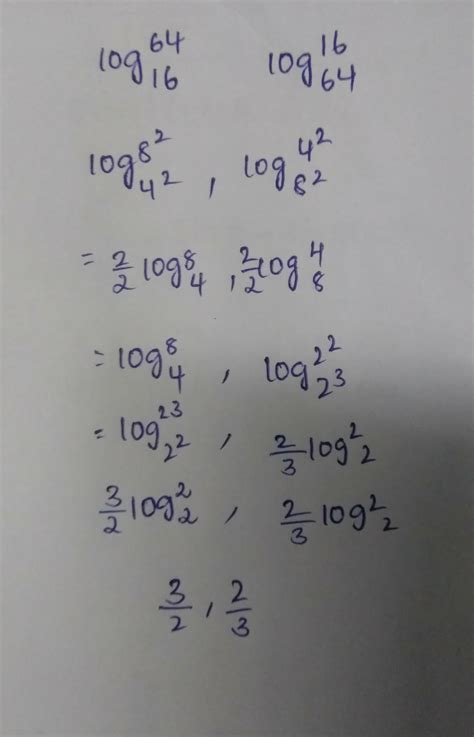 log₁₆⁶⁴ log₆₄¹⁶
log₄²^8² , log₈²^4²
= 2/2 log₄⁸ , 2/2 log₈⁴
= log₄⁸ , log₂³^2²
= log₂²^2³ , 2/3 log₂²
3/2 log₂² , 2/3 log₂²
3/2 , 2/3